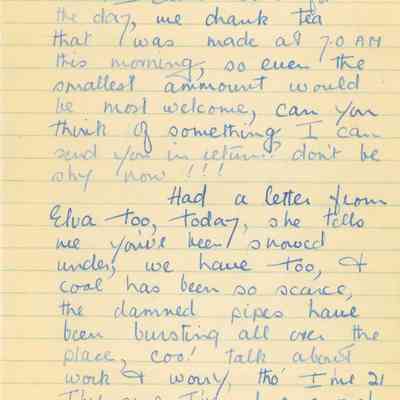 the day, we drank tea
that was made at 7.0 AM
this morning, so even the
smallest ammount would
be most welcome, can you
think of something I can
send you in return? don't be
shy now !!!
Had a letter from
Elva too, today, she tells
me you've been snowed
under, we have too, &
coal has been so scarce,
the damned pipes have
been bursting all over the
place, coo! talk about
work & worry, tho' I'me 21